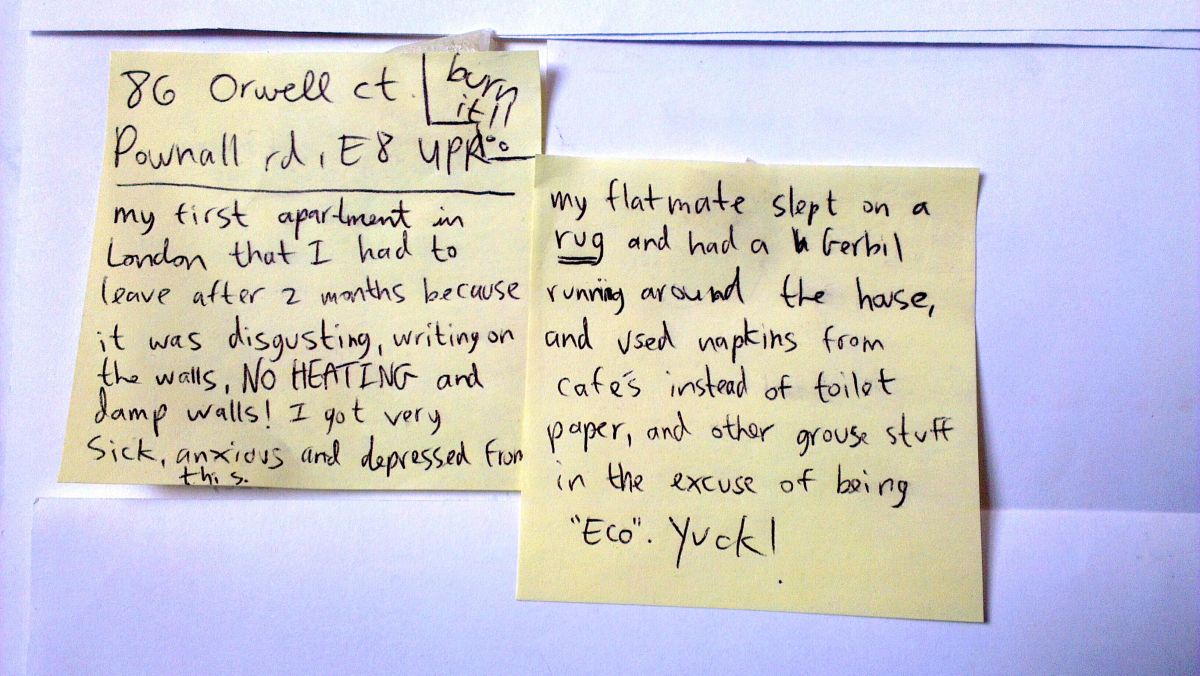 86 Orwell ct.
burn
it!!
Pownall rd, E8 4PR
my first apartment in
London that I had to
leave after 2 months because
it was disgusting, writing on
the walls, NO HEATING and
damp walls! I got very
sick, anxious and depressed from
this.
my flatmate slept on a
rug and had a Gerbil
running around the house,
and used napkins from
cafe's instead of toilet
paper, and other grouse stuff
in the excuse of being
"Eco". Yuck!